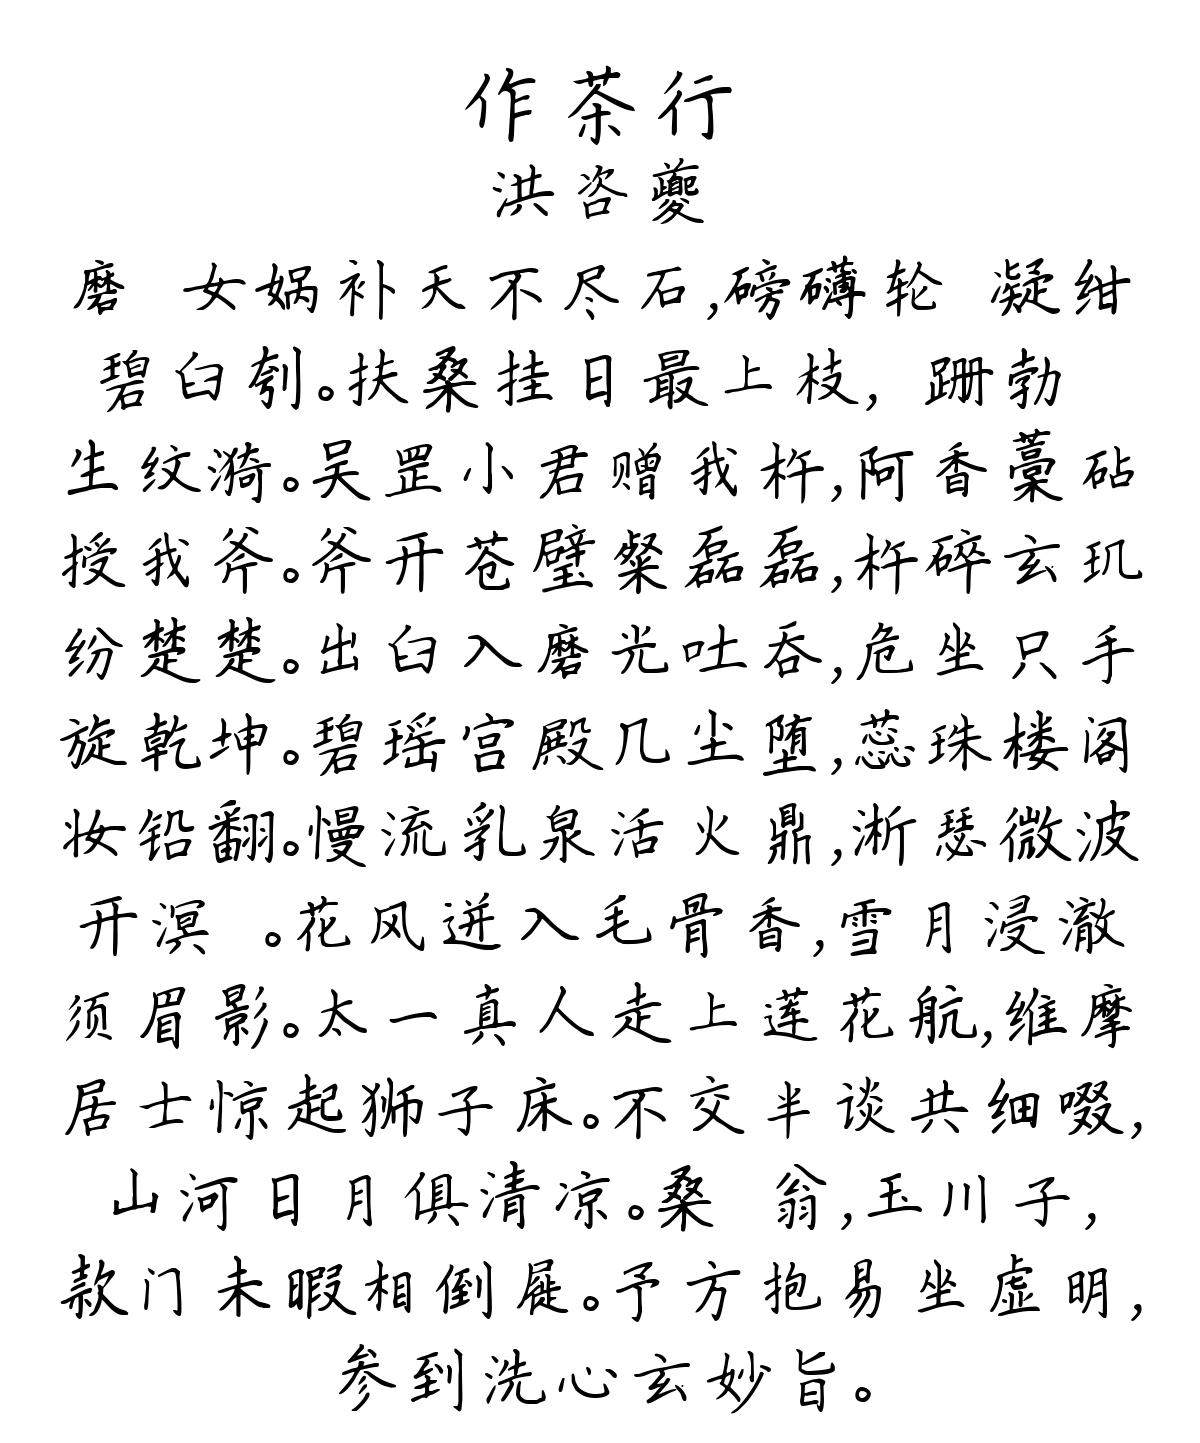 作茶行
洪咨夔
磨 女娲补天不尽石,磅礴轮 凝绀
碧臼刳。扶桑挂日最上枝, 跚勃
生纹漪。吴罡小君赠我杵,阿香藁砧
授我斧。斧开苍璧粲磊磊,杵碎玄玑
纷楚楚。出臼入磨光吐吞,危坐只手
旋乾坤。碧瑶宫殿几尘堕,蕊珠楼阁
妆铅翻。慢流乳泉活火鼎,淅瑟微波
开溟 。花风迸入毛骨香,雪月浸澈
须眉影。太一真人走上莲花航,维摩
居士惊起狮子床。不交半谈共细啜,
山河日月俱清凉。桑 翁,玉川子,
款门未暇相倒屣。予方抱易坐虚明,
参到洗心玄妙旨。